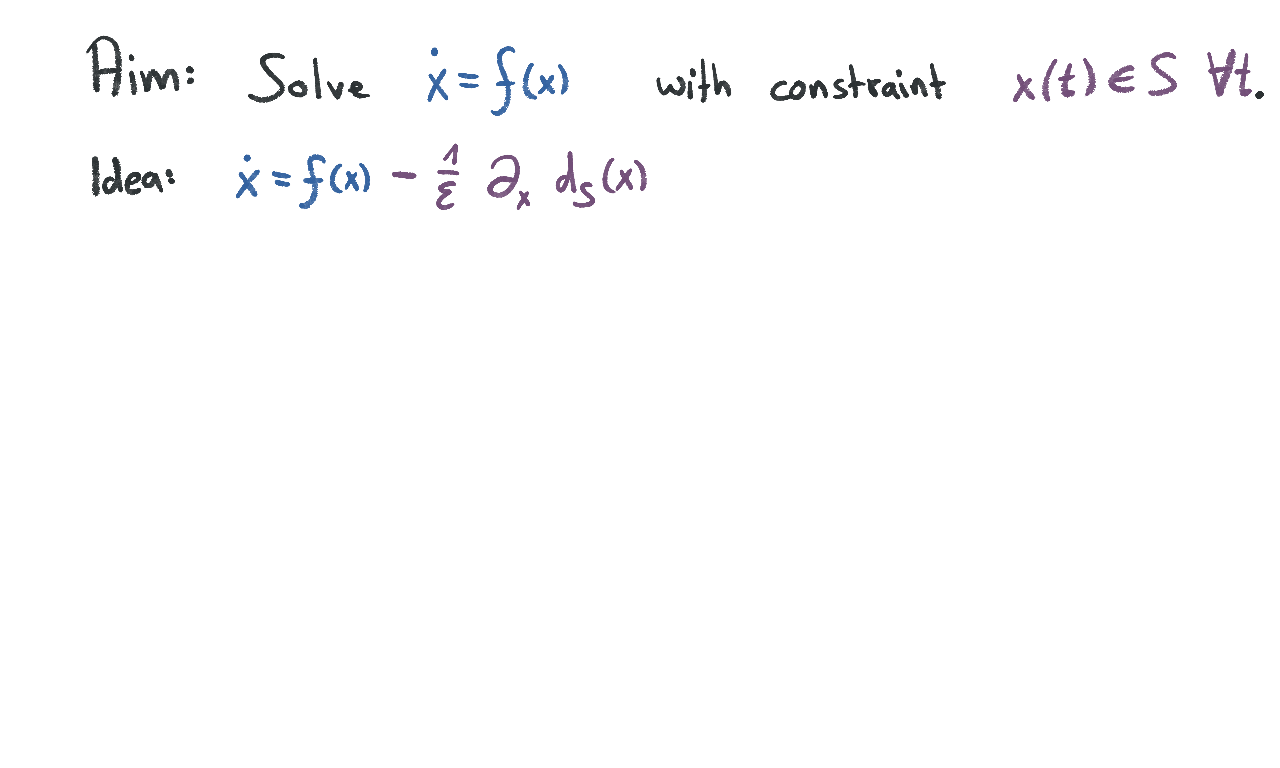 Aim: Solve ẋ = f(x) with constraint x(t) ∈ S ∀t.
Idea: ẋ = f(x) − 1/ε ∂ₓ d_S(x)